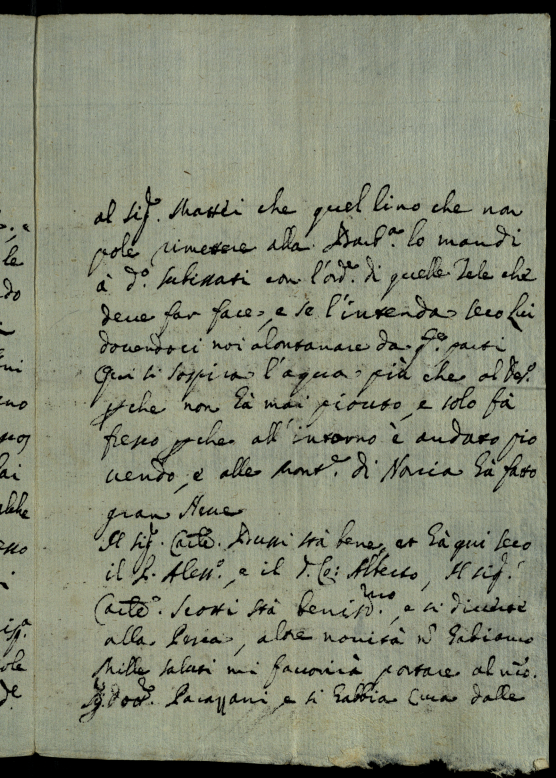 al Sig.r Mattei che quel lino che non
pole rimetere alla Barb.a lo mandi
à d.o Subissati con l'ord.e di quelle Tele che
deve far fare, e se l'intenda seco lui
dovendoci noi alontanare da q.ste parti
Qui si sospira l'acqua più che al
che non hà mai piouto, e solo fà
fresco che all'intorno è andato pio
uendo, e alle Mont.e di Norcia hà fatto
gran Neue
Il Sig.r Bussi stà bene, et hà qui seco
il Aless.o, e il Alberto, Il Sig.r
Scotti stà beniss.mo, e si diuerte
alla Pesca, altre nouità n̄ habbiamo
Mille saluti mi fauorirà portare al n̄ro.
Sig. Dott.r e si habbia cura dalle